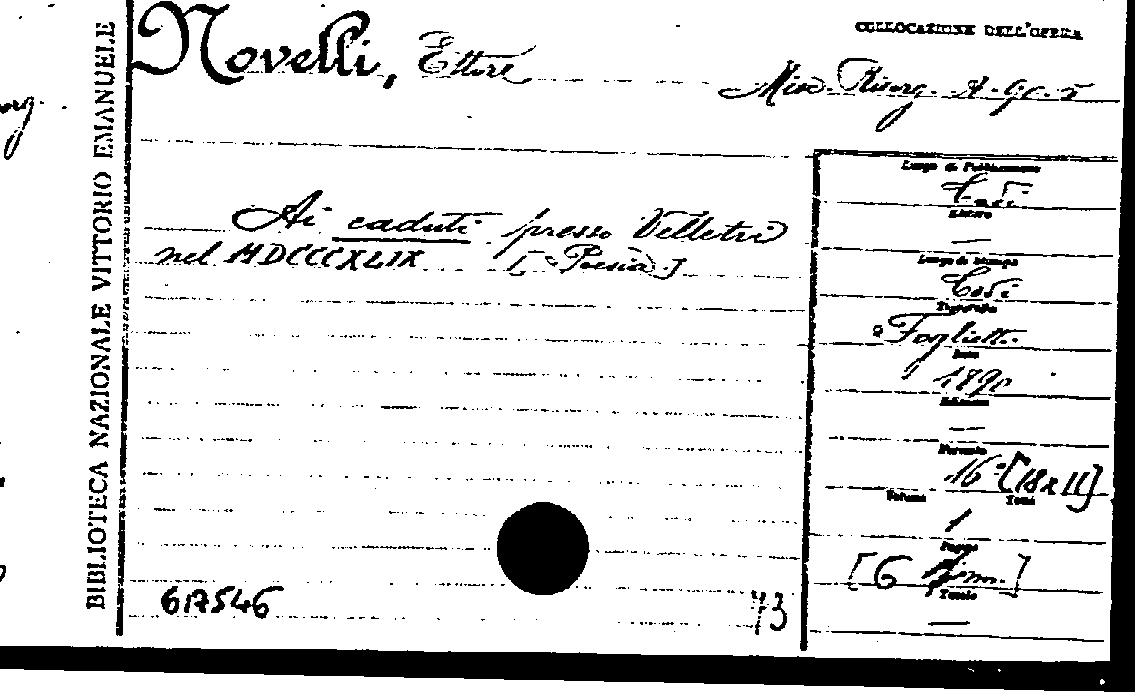 BIBLIOTECA NAZIONALE VITTORIO EMANUELE
Novelli, Ettore
COLLOCAZIONE DELL'OPERA
Misc. Risorg. A. 90. 5
Ai caduti presso Velletri
nel MDCCCXLIX [Poesia]
Luogo di Pubblicazione
Todi
Editore
—
Luogo di Stampa
Todi
Tipografia
Foglietti
Data
1890
Edizione
—
Formato
16° [18x11]
Volume Tomo
1
Pagine
[6
Tavole
—
617546
73